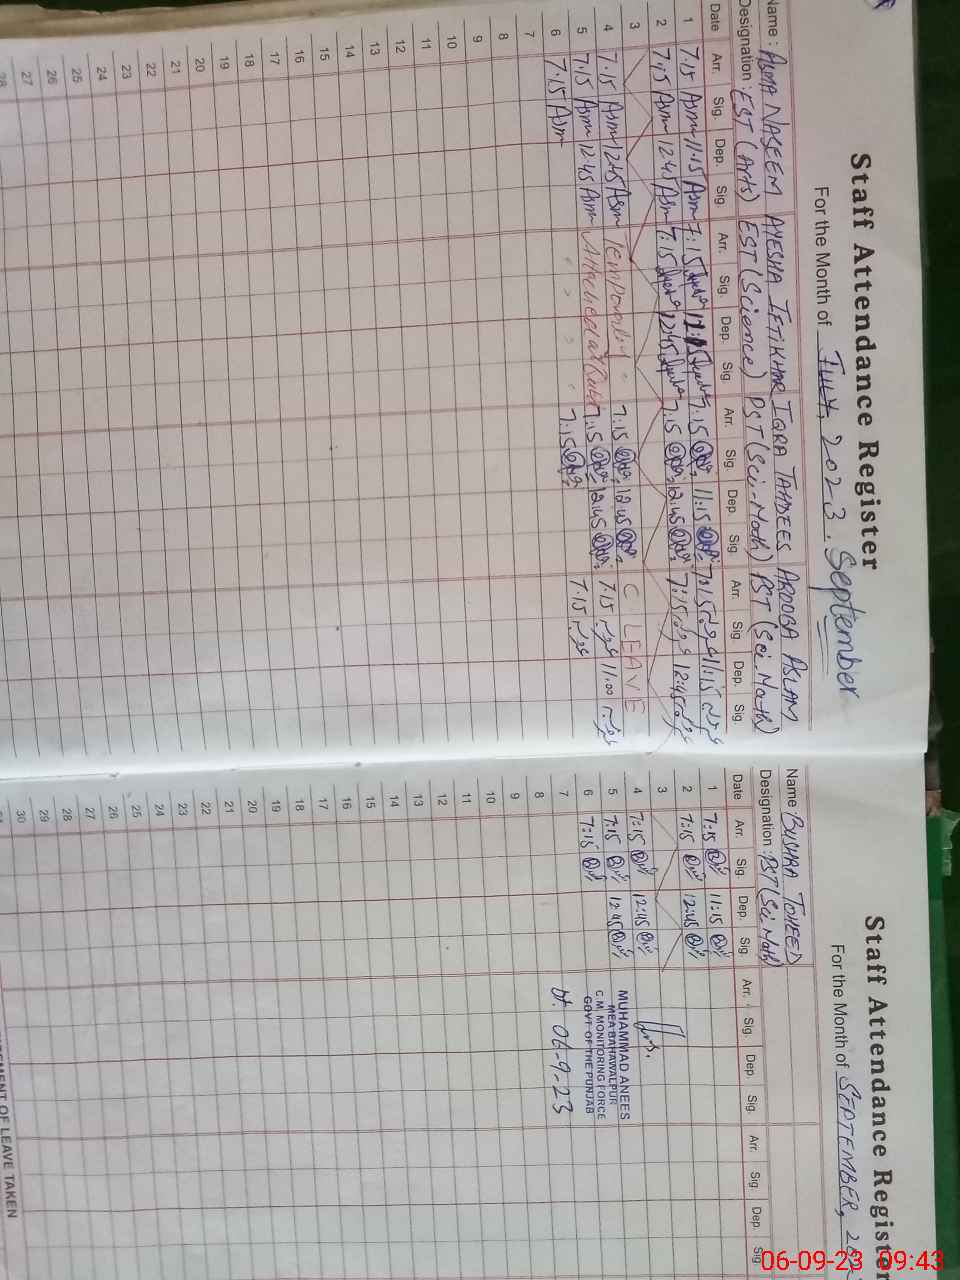 Staff Attendance Register
For the Month of July, 2023. September
Name : ASMA NASEEM AYESHA IFTIKHAR IQRA TAHDEES AROOBA ASLAM
Designation : EST (Arts) EST (Science) PST (Sci-Math) PST (Sci.Math)
Date Arr. Sig. Dep. Sig. Arr. Sig. Dep. Sig. Arr. Sig. Dep. Sig. Arr. Sig. Dep. Sig.
1 7.15 Asm 11.15 Asm 7:15 7:15 11.15 7:15 11:15
2 7:15 Asm 12.45 Asm 7:15 12:45 7:15 12.45 7:15 12:45
3
4 7.15 Asm 12.45 Asm Temporarily 7:15 12.45 C. LEAVE
5 7.15 Asm 12.45 Asm Attached at 7:15 12.45 7.15 11.00
6 7.15 Asm 7:15 7.15
7
8
9
10
11
12
13
14
15
16
17
18
19
20
21
22
23
24
25
26
27
28
Staff Attendance Register
For the Month of SEPTEMBER,
Name : BUSHRA TOHEED
Designation : PST (Sci Math)
Date Arr. Sig. Dep. Sig. Arr. Sig. Dep. Sig. Arr. Sig. Dep. Sig
1 7:15 11:15
2 7:15 12:45
3
4 7:15 12:45
5 7:15 12:45
6 7:15
7
8
9
10
11
12
13
14
15
16
17
18
19
20
21
22
23
24
25
26
27
28
29
30
MUHAMMAD ANEES
MEA BAHAWALPUR
C.M. MONITORING FORCE
GOVT OF THE PUNJAB
Dt. 06-9-23
OF LEAVE TAKEN
06-09-23 09:43